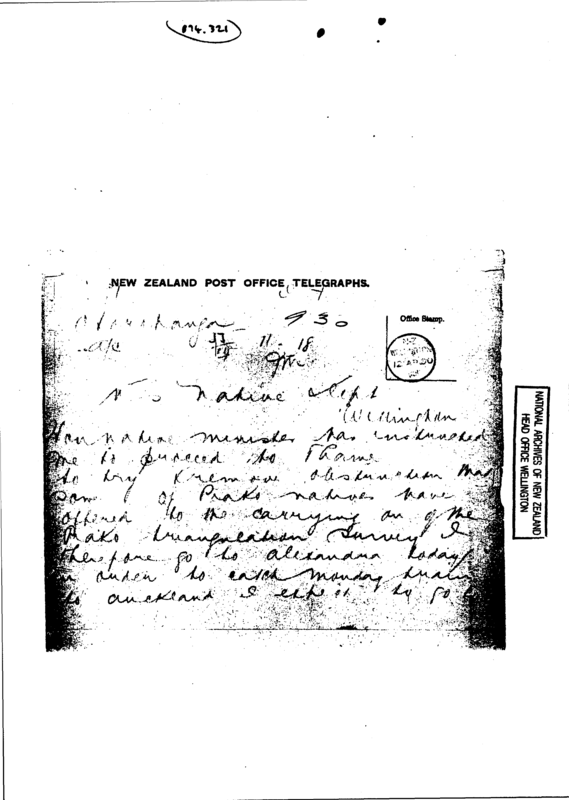 074.321
NEW ZEALAND POST OFFICE TELEGRAPHS.
Otorohanga 930
Office Stamp.
11. 18
Native Dept
Wellington
Hon native minister has instructed
me to proceed to Thame
to try & remove obstruction that
Some of Piako natives have
offered to the carrying on of the
Piako triangulation Survey I
therefore go to alexandra today
in order to catch monday train
to auckland I expect to go to
NATIONAL ARCHIVES OF NEW ZEALAND
HEAD OFFICE WELLINGTON